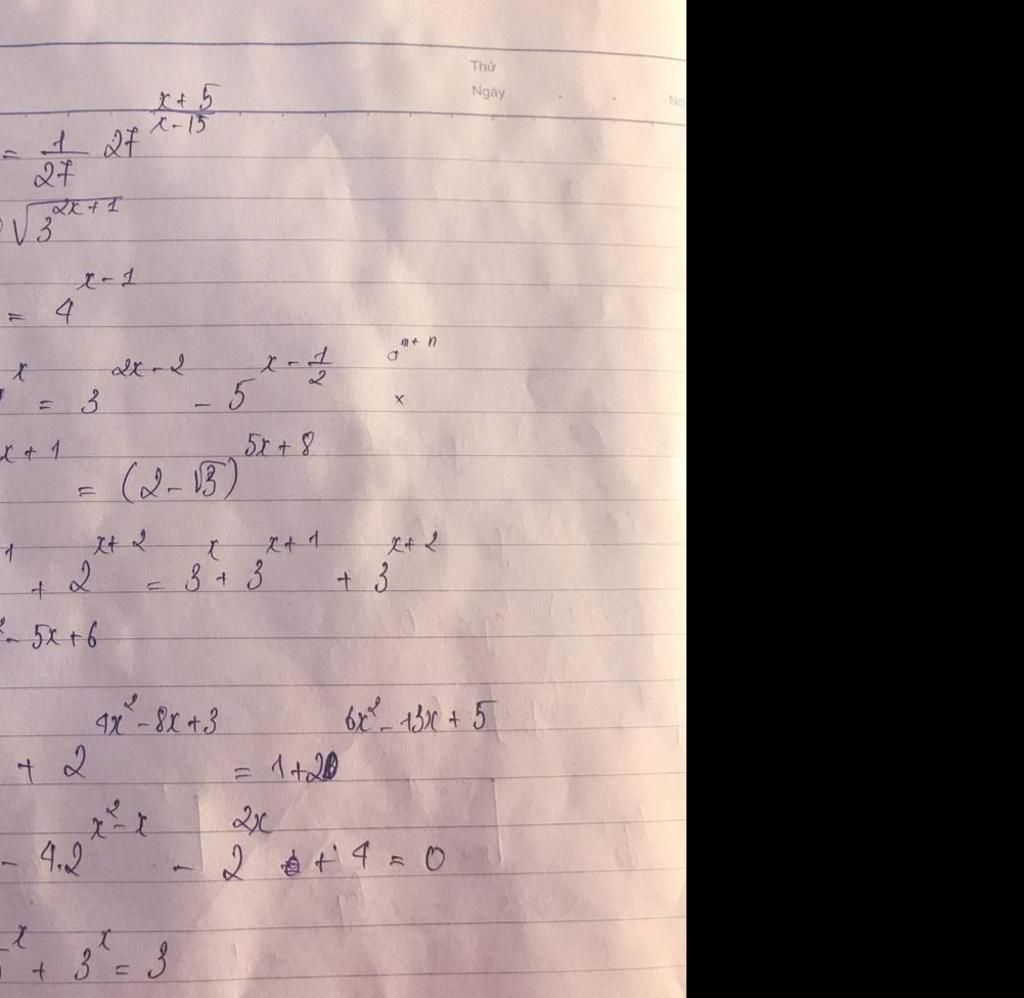 Thứ
Ngày
= 1/27 27^((x+5)/(x-15))
√(3^(2x+1))
= 4^(x-1)
^x = 3^(2x-2) - 5^(x-1/2) a^(m+n)
x
^(x+1) = (2-√3)^(5x+8)
^1 + 2^(x+2) = 3^x + 3^(x+1) + 3^(x+2)
- 5x+6
+ 2^(4x²-8x+3) = 1+2^(6x²-13x+5)
- 4.2^(x²-x) - 2^(2x) + 4 = 0
^x + 3^x = 3